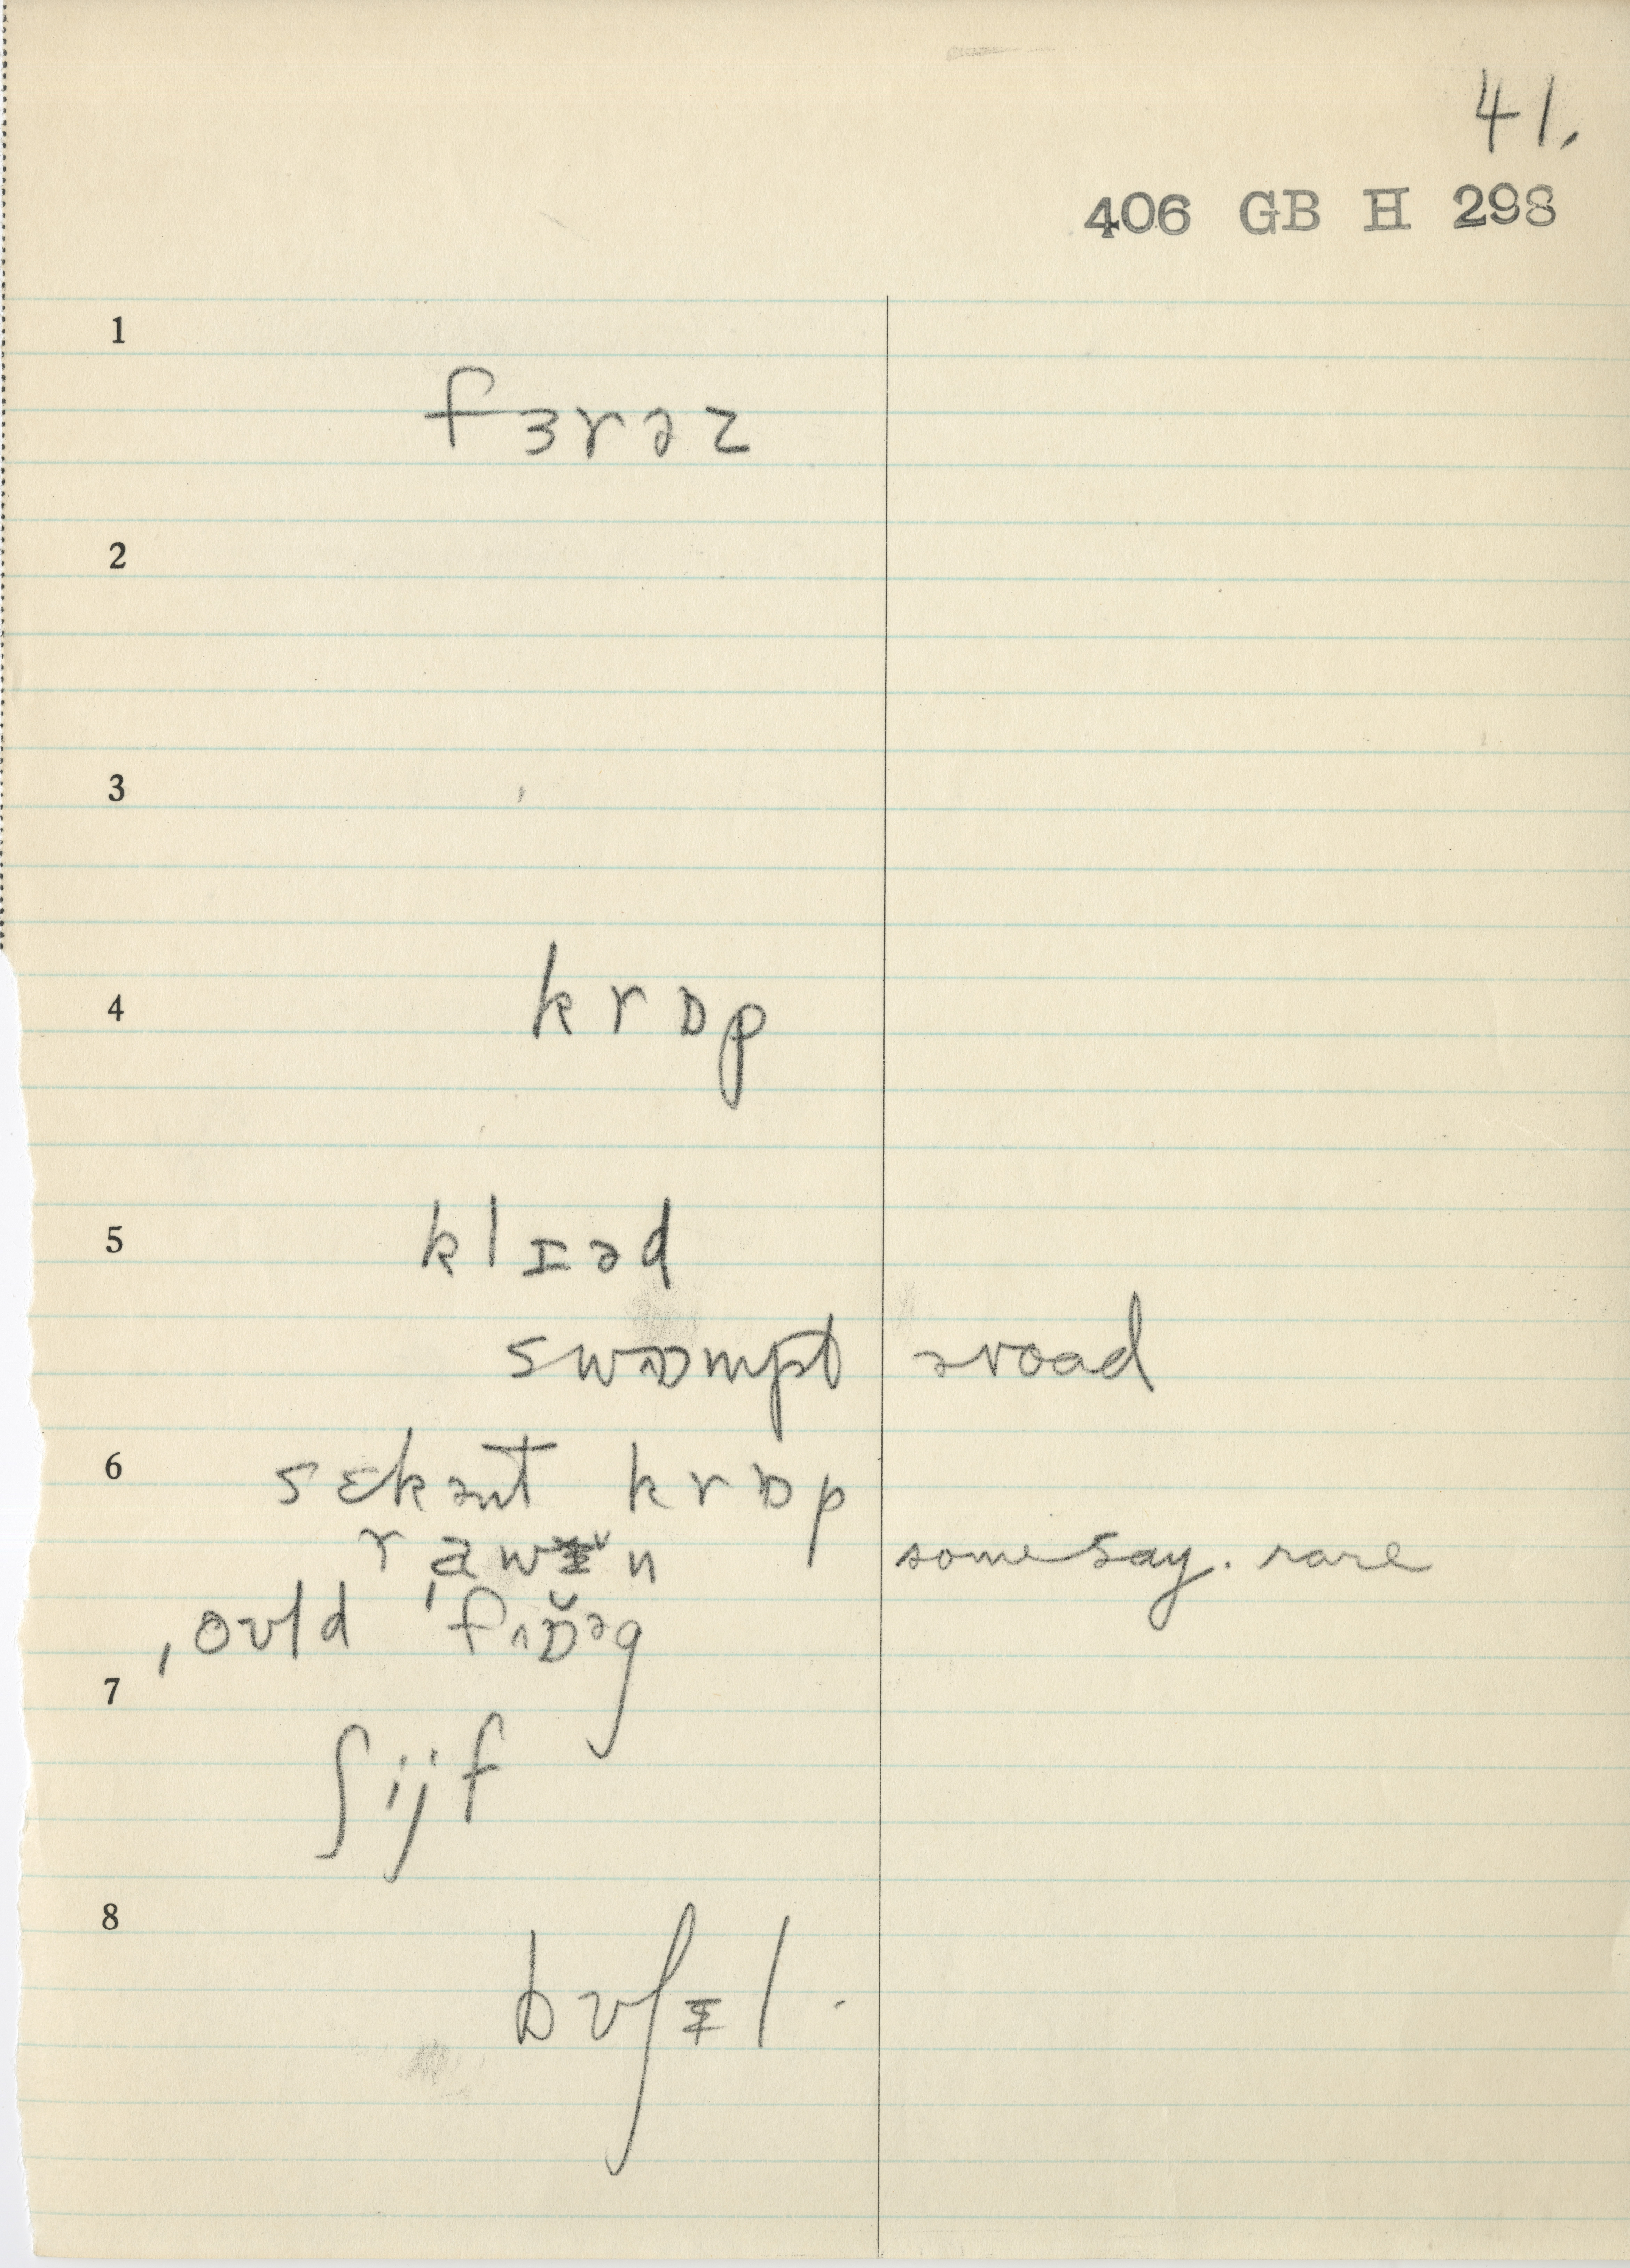 41.
406 GB H 298
1
fɜrəz
2
3
4
krɒp
5
klɪəd
swɒmpt əroad
6
sɛkənt krɒp
some say. rare
ˌould
7
ʃijf
8
bʊʃɪ̵l